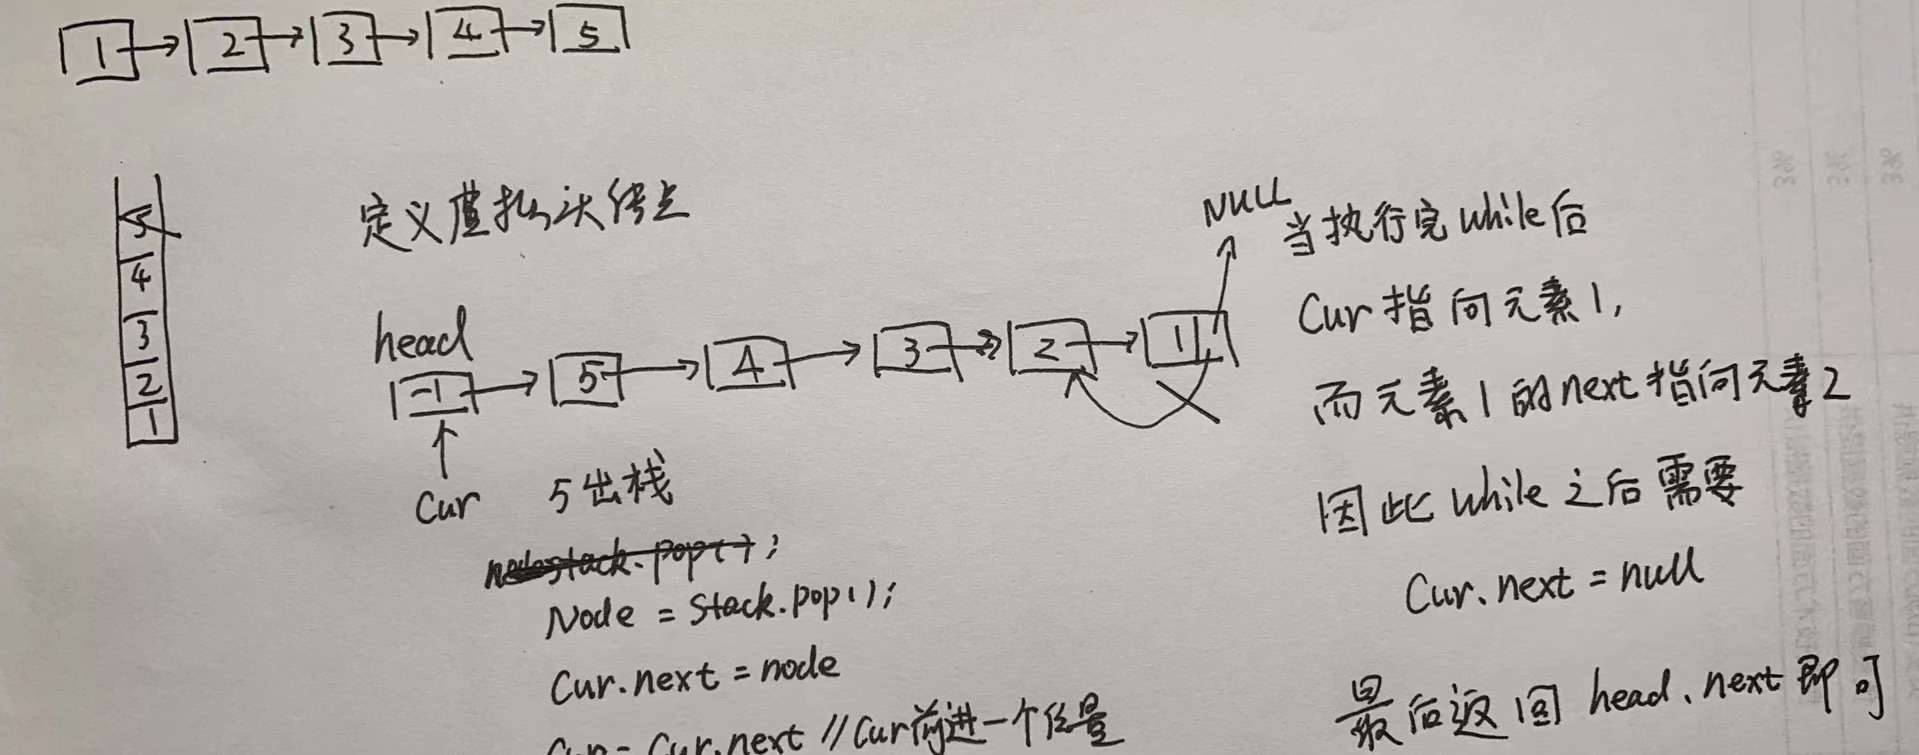 1 2 3 4 5
5
4
3
2
1
定义虚拟头结点
head
-1 5 4 3 2 1
NULL
Cur
5出栈
stack.pop();
Node = Stack.pop();
Cur.next = node
Cur = Cur.next //Cur前进一个位置
当执行完while后
Cur指向元素1,
而元素1的next指向元素2
因此while之后需要
Cur.next = null
最后返回head.next即可